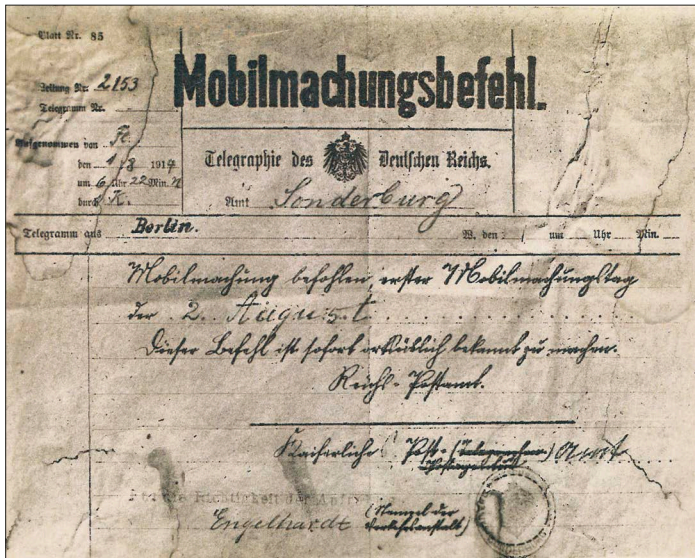 Blatt Nr. 85
Mobilmachungsbefehl.
Leitung Nr. 2153
Telegramm Nr.
Aufgenommen von Fe
den 1/8 1914
um 6 Uhr 22 Min. N
durch K.
Telegraphie des Deutschen Reichs.
Amt Sonderburg
Telegramm aus Berlin. W. den um Uhr Min.
Mobilmachung befohlen, erster Mobilmachungstag
der 2. August
Dieser Befehl ist sofort ortsüblich bekannt zu machen.
Reichs-Postamt.
Kaiserliches Post-(Telegraphen) Amt
Postagentur
Für die Richtigkeit der
Engelhardt (Stempel der
Verkehrsanstalt)